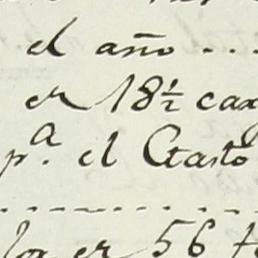 el año ....
er 18½ cax
p.ª el Gasto
er 56 f